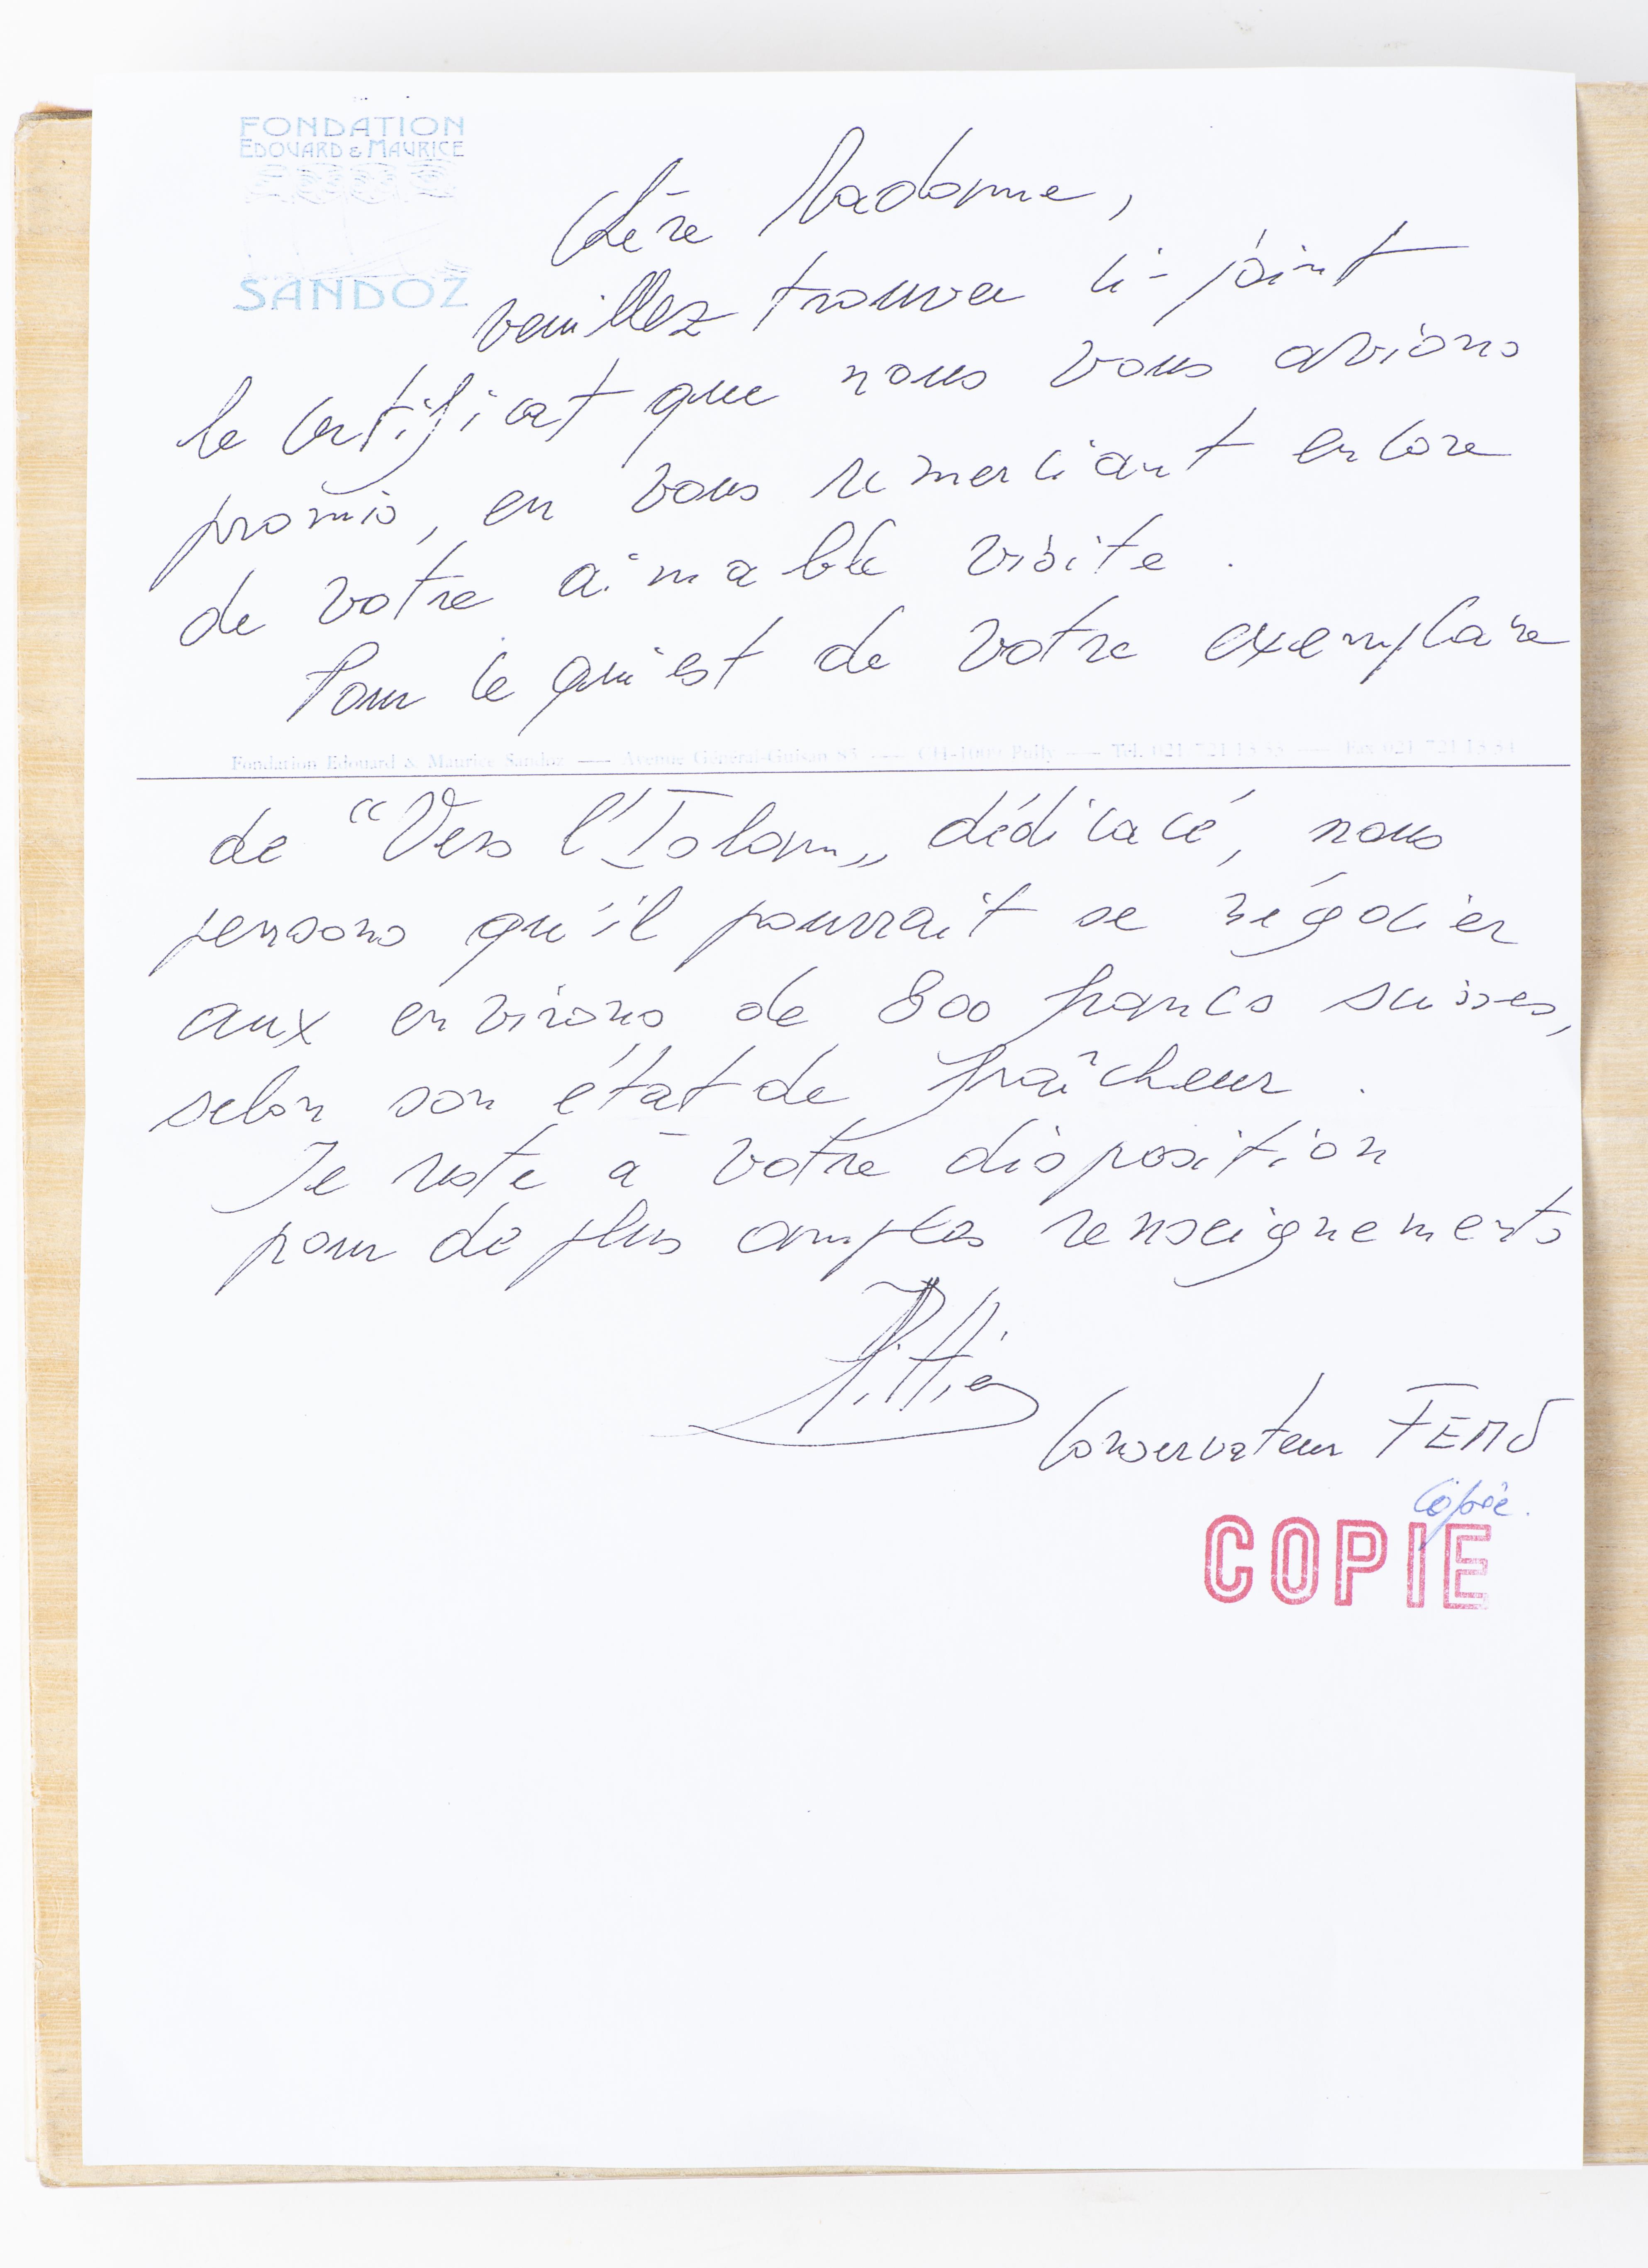 FONDATION
EDOUARD & MAURICE
SANDOZ
Chère Madame,
veuillez trouver ci-joint
le certificat que nous vous avions
promis, en vous remerciant encore
de votre aimable visite.
Pour ce qui est de votre exemplaire
Fondation Edouard & Maurice Sandoz — Avenue Général-Guisan 85 — CH-1009 Pully — Tel. 021 721 13 33 — Fax 021 721 13 34
de "Vers l'Islam„ dédicacé, nous
pensons qu'il pourrait se négocier
aux environs de 800 francs suisses,
selon son état de fraîcheur.
Je reste à votre disposition
pour de plus amples renseignements
Conservateur FEMS
Copie.
COPIE